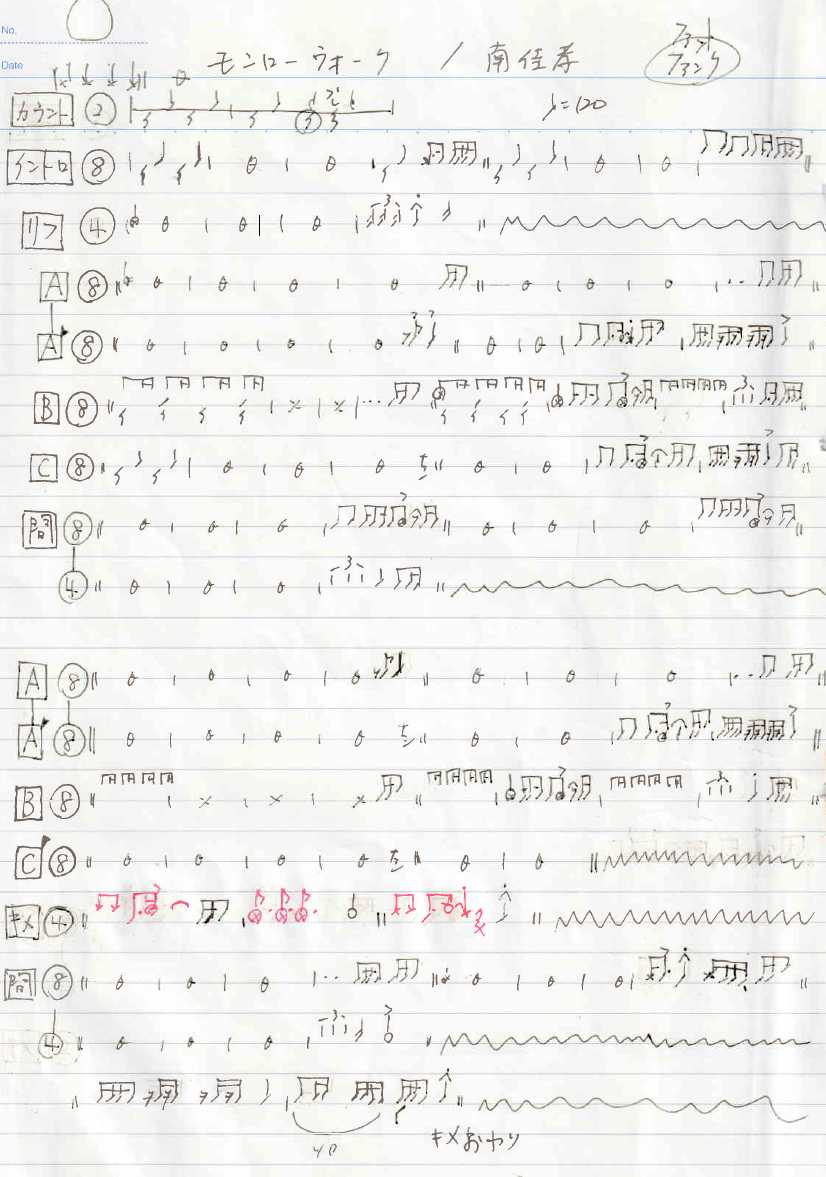 No.
モンローウォーク / 南佳孝 ファットファンク
Date
カウント ② ♩=120
イントロ ⑧
リフ ④
A ⑧
A' ⑧
B ⑧
C ⑧
間 ⑧
④
A ⑧
A' ⑧
B ⑧
C' ⑧
キメ ④
間 ⑧
④
キメおわり